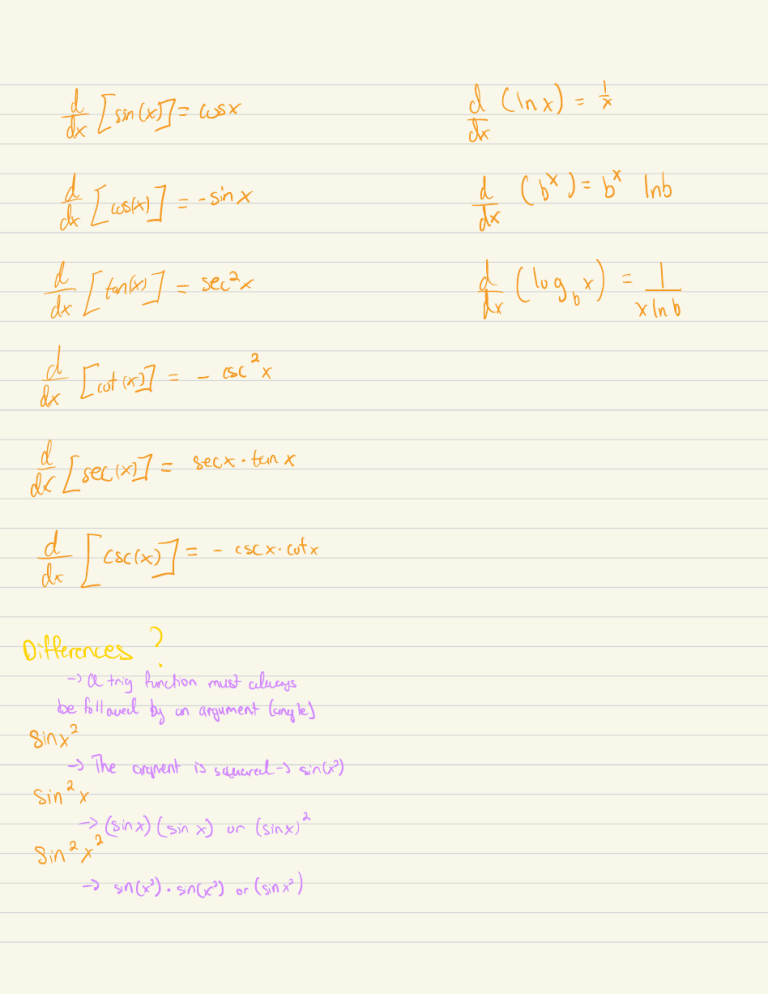 d/dx [sin(x)] = cosx
d/dx [cos(x)] = -sinx
d/dx [tan(x)] = sec²x
d/dx [cot(x)] = - csc²x
d/dx [sec(x)] = secx · tanx
d/dx [csc(x)] = - cscx · cotx
d/dx (lnx) = 1/x
d/dx (bˣ) = bˣ lnb
d/dx (log_b x) = 1/(x ln b)
Differences?
-> a trig function must always
be followed by an argument (angle)
sinx²
-> The argment is squared -> sin(x²)
sin²x
-> (sinx)(sin x) or (sinx)²
sin²x²
-> sin(x²) · sin(x²) or (sinx²)